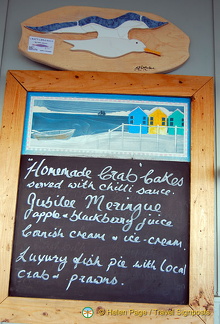 "Homemade Crab" Cakes
served with chilli sauce.
Jubilee Meringue
apple & blackberry juice
Cornish cream & ice-cream.
Luxury fish pie with local
crab & prawns.
© Helen Page / Travel Signposts